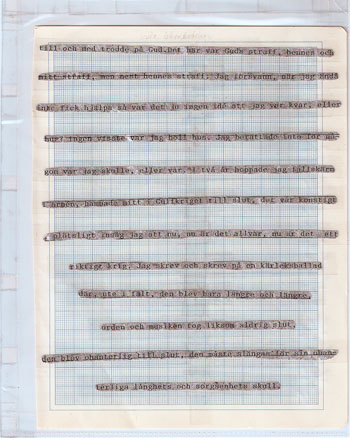 till och med trodde på Gud. Det här var Guds straff, hennes och
mitt straff, men mest hennes straff. Jag försvann, när jag ändå
inte fick hjälpa så var det ju ingen idé att jag var kvar, eller
hur? ingen visste var jag höll hus. Jag berättade inte för nå-
gon var jag skulle, eller var. I två år hoppade jag fallskärm
i armén, hamnade mitt i Gulfkriget till slut, det var konstigt
plötsligt insåg jag att nu, nu är det allvar, nu är det ett
riktigt krig. Jag skrev och skrev på en kärleksballad
där, ute i fält, den blev bara längre och längre,
orden och musiken tog liksom aldrig slut,
den blev ohanterlig till slut, den måste slängas för sin ohan-
terliga långhets och sorgsenhets skull.